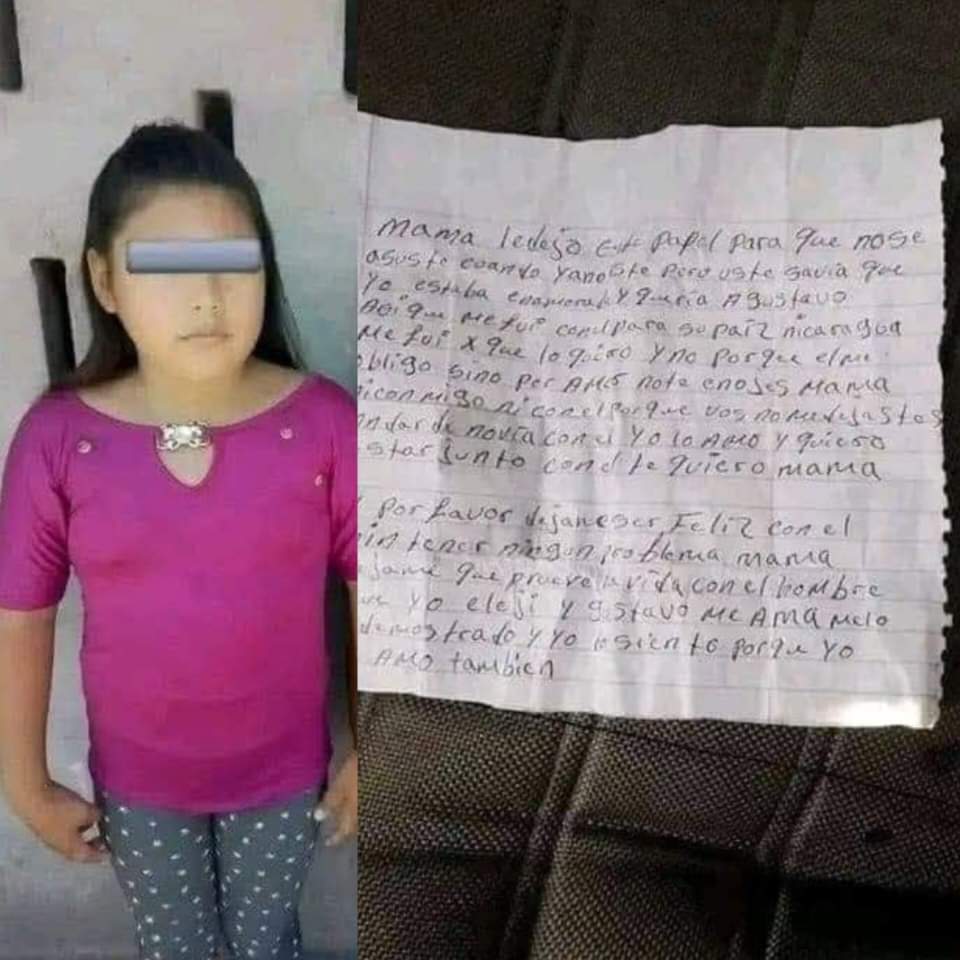 Mama ledejo este papel para que nose
asuste cuando yanoste pero uste savia que
yo estaba enamorada y queria AGustavo
Asi que me fui conel para su paiz nicaragua
Me fui x que lo quiero y no porque elme
bligo sino por AMor note enojes Mama
niconmigo ni conel porque vos nomedejastes
ndar de novia con el yo lo AMO y quiero
star junto con el te quiero mama
por favor dejameser Feliz con el
in tener ningun problema mama
jame que prueve la vida con el hombre
ue yo eleji y gustavo Me AMA Melo
demostrado y yo lo siento porque yo
AMO tambien